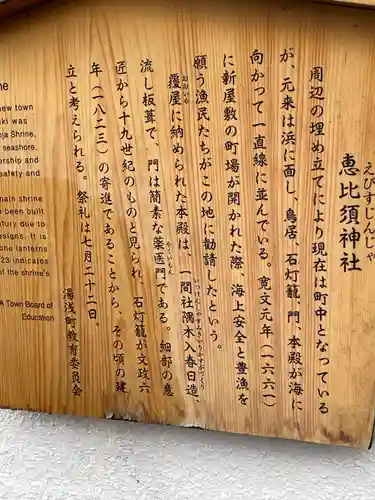 恵比須神社
えびすじんじゃ
周辺の埋め立てにより現在は町中となっている
が、元来は浜に面し、鳥居、石灯籠、門、本殿が海に
向かって一直線に並んでいる。寛文元年(一六六一)
に新屋敷の町場が開かれた際、海上安全と豊漁を
願う漁民たちがこの地に勧請したという。
おおいや
覆屋に納められた本殿は、一間社隅木入春日造、
いっけんしゃすみきいりかすがづくり
流し板葺で、門は簡素な薬医門である。細部の意
やくいもん
匠から十九世紀のものと見られ、石灯籠が文政六
年(一八二三)の寄進であることから、その頃の建
立と考えられる。祭礼は七月二十二日。
湯浅町教育委員会
ne
new town
ki was
nja Shrine,
seashore,
ership and
safety and
ain shrine
been built
entury due to
esigns. It is
one lanterns
23 indicates
of the shrine's
A Town Board of
Education